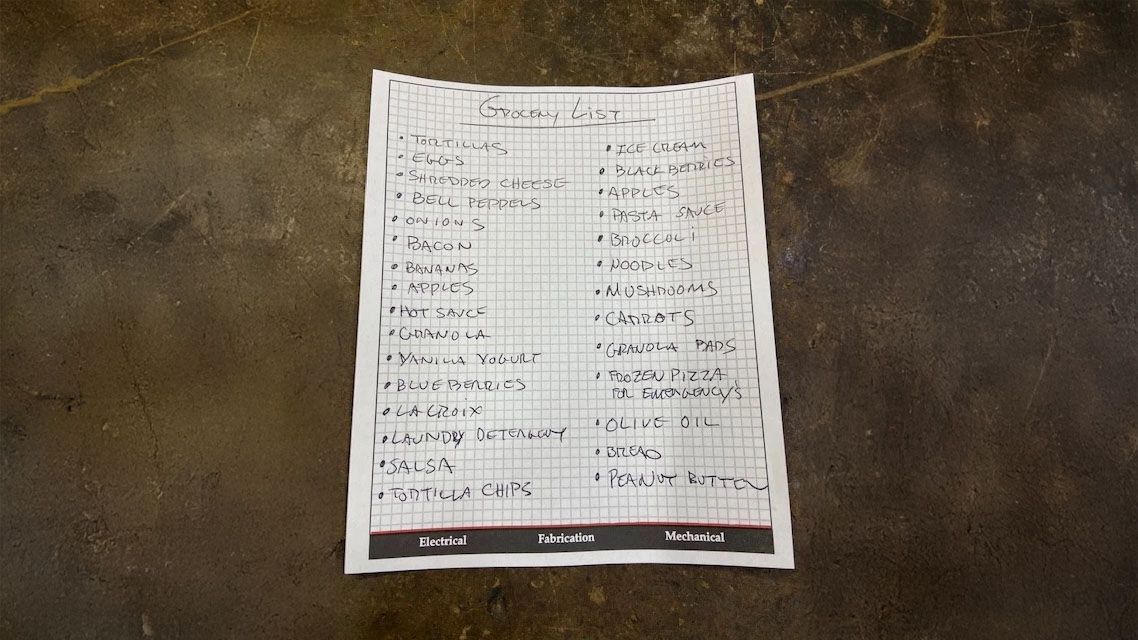 GROCERY LIST
• TORTILLAS
• EGGS
• SHREDDED CHEESE
• BELL PEPPERS
• ONIONS
• BACON
• BANANAS
• APPLES
• HOT SAUCE
• GRANOLA
• VANILLA YOGURT
• BLUEBERRIES
• LA CROIX
• LAUNDRY DETERGENT
• SALSA
• TORTILLA CHIPS
• ICE CREAM
• BLACKBERRIES
• APPLES
• PASTA SAUCE
• BROCCOLI
• NOODLES
• MUSHROOMS
• CARROTS
• GRANOLA BARS
• FROZEN PIZZA
FOR EMERGENCY'S
• OLIVE OIL
• BREAD
• PEANUT BUTTER
Electrical Fabrication Mechanical